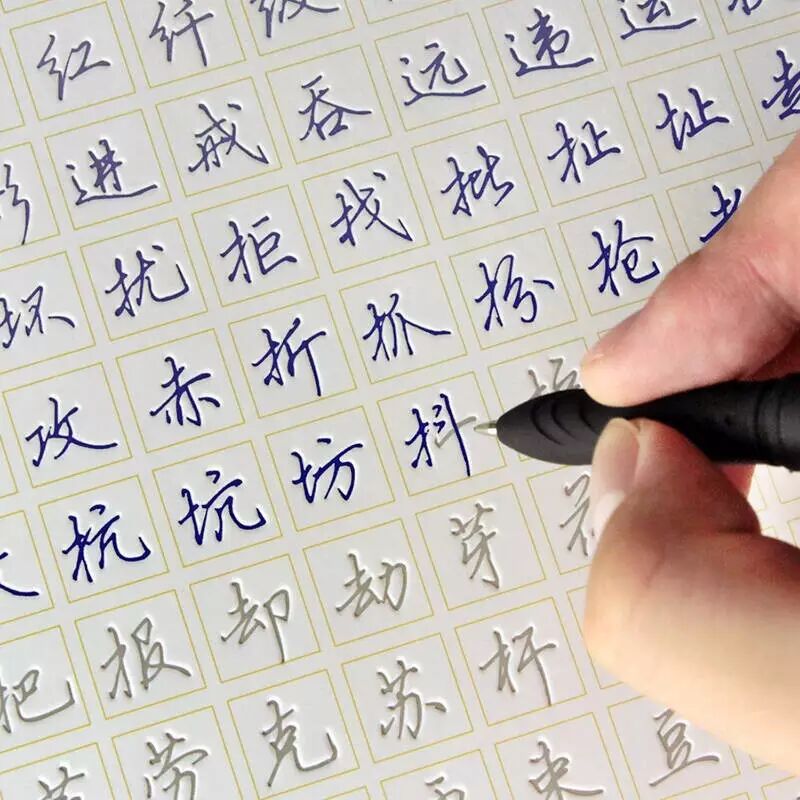 红纤级
进戒吞远违运
坏扰拒找批扯址
攻赤折抓扮抢
抗坑坊抖
把报却劫芽
劳克苏杆
束豆